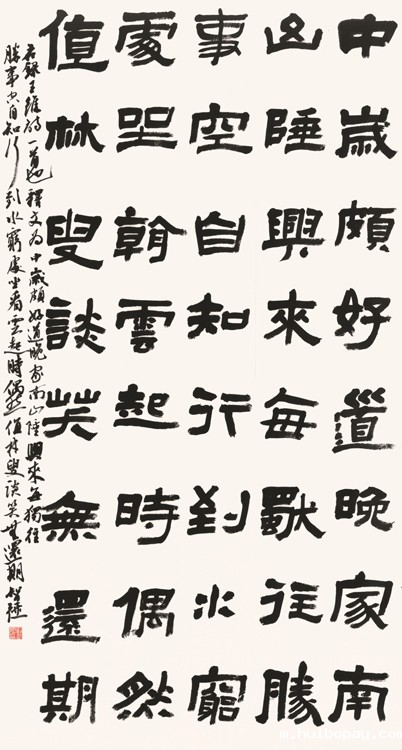 中歲頗好道晚家南
山陲興來每獨往勝
事空自知行到水窮
處坐看雲起時偶然
值林叟談笑無還期
右録王維詩一首也釋文為中歲頗好道晚家南山陲興來每獨往
勝事空自知行到水窮處坐看雲起時偶然值林叟談笑無還期